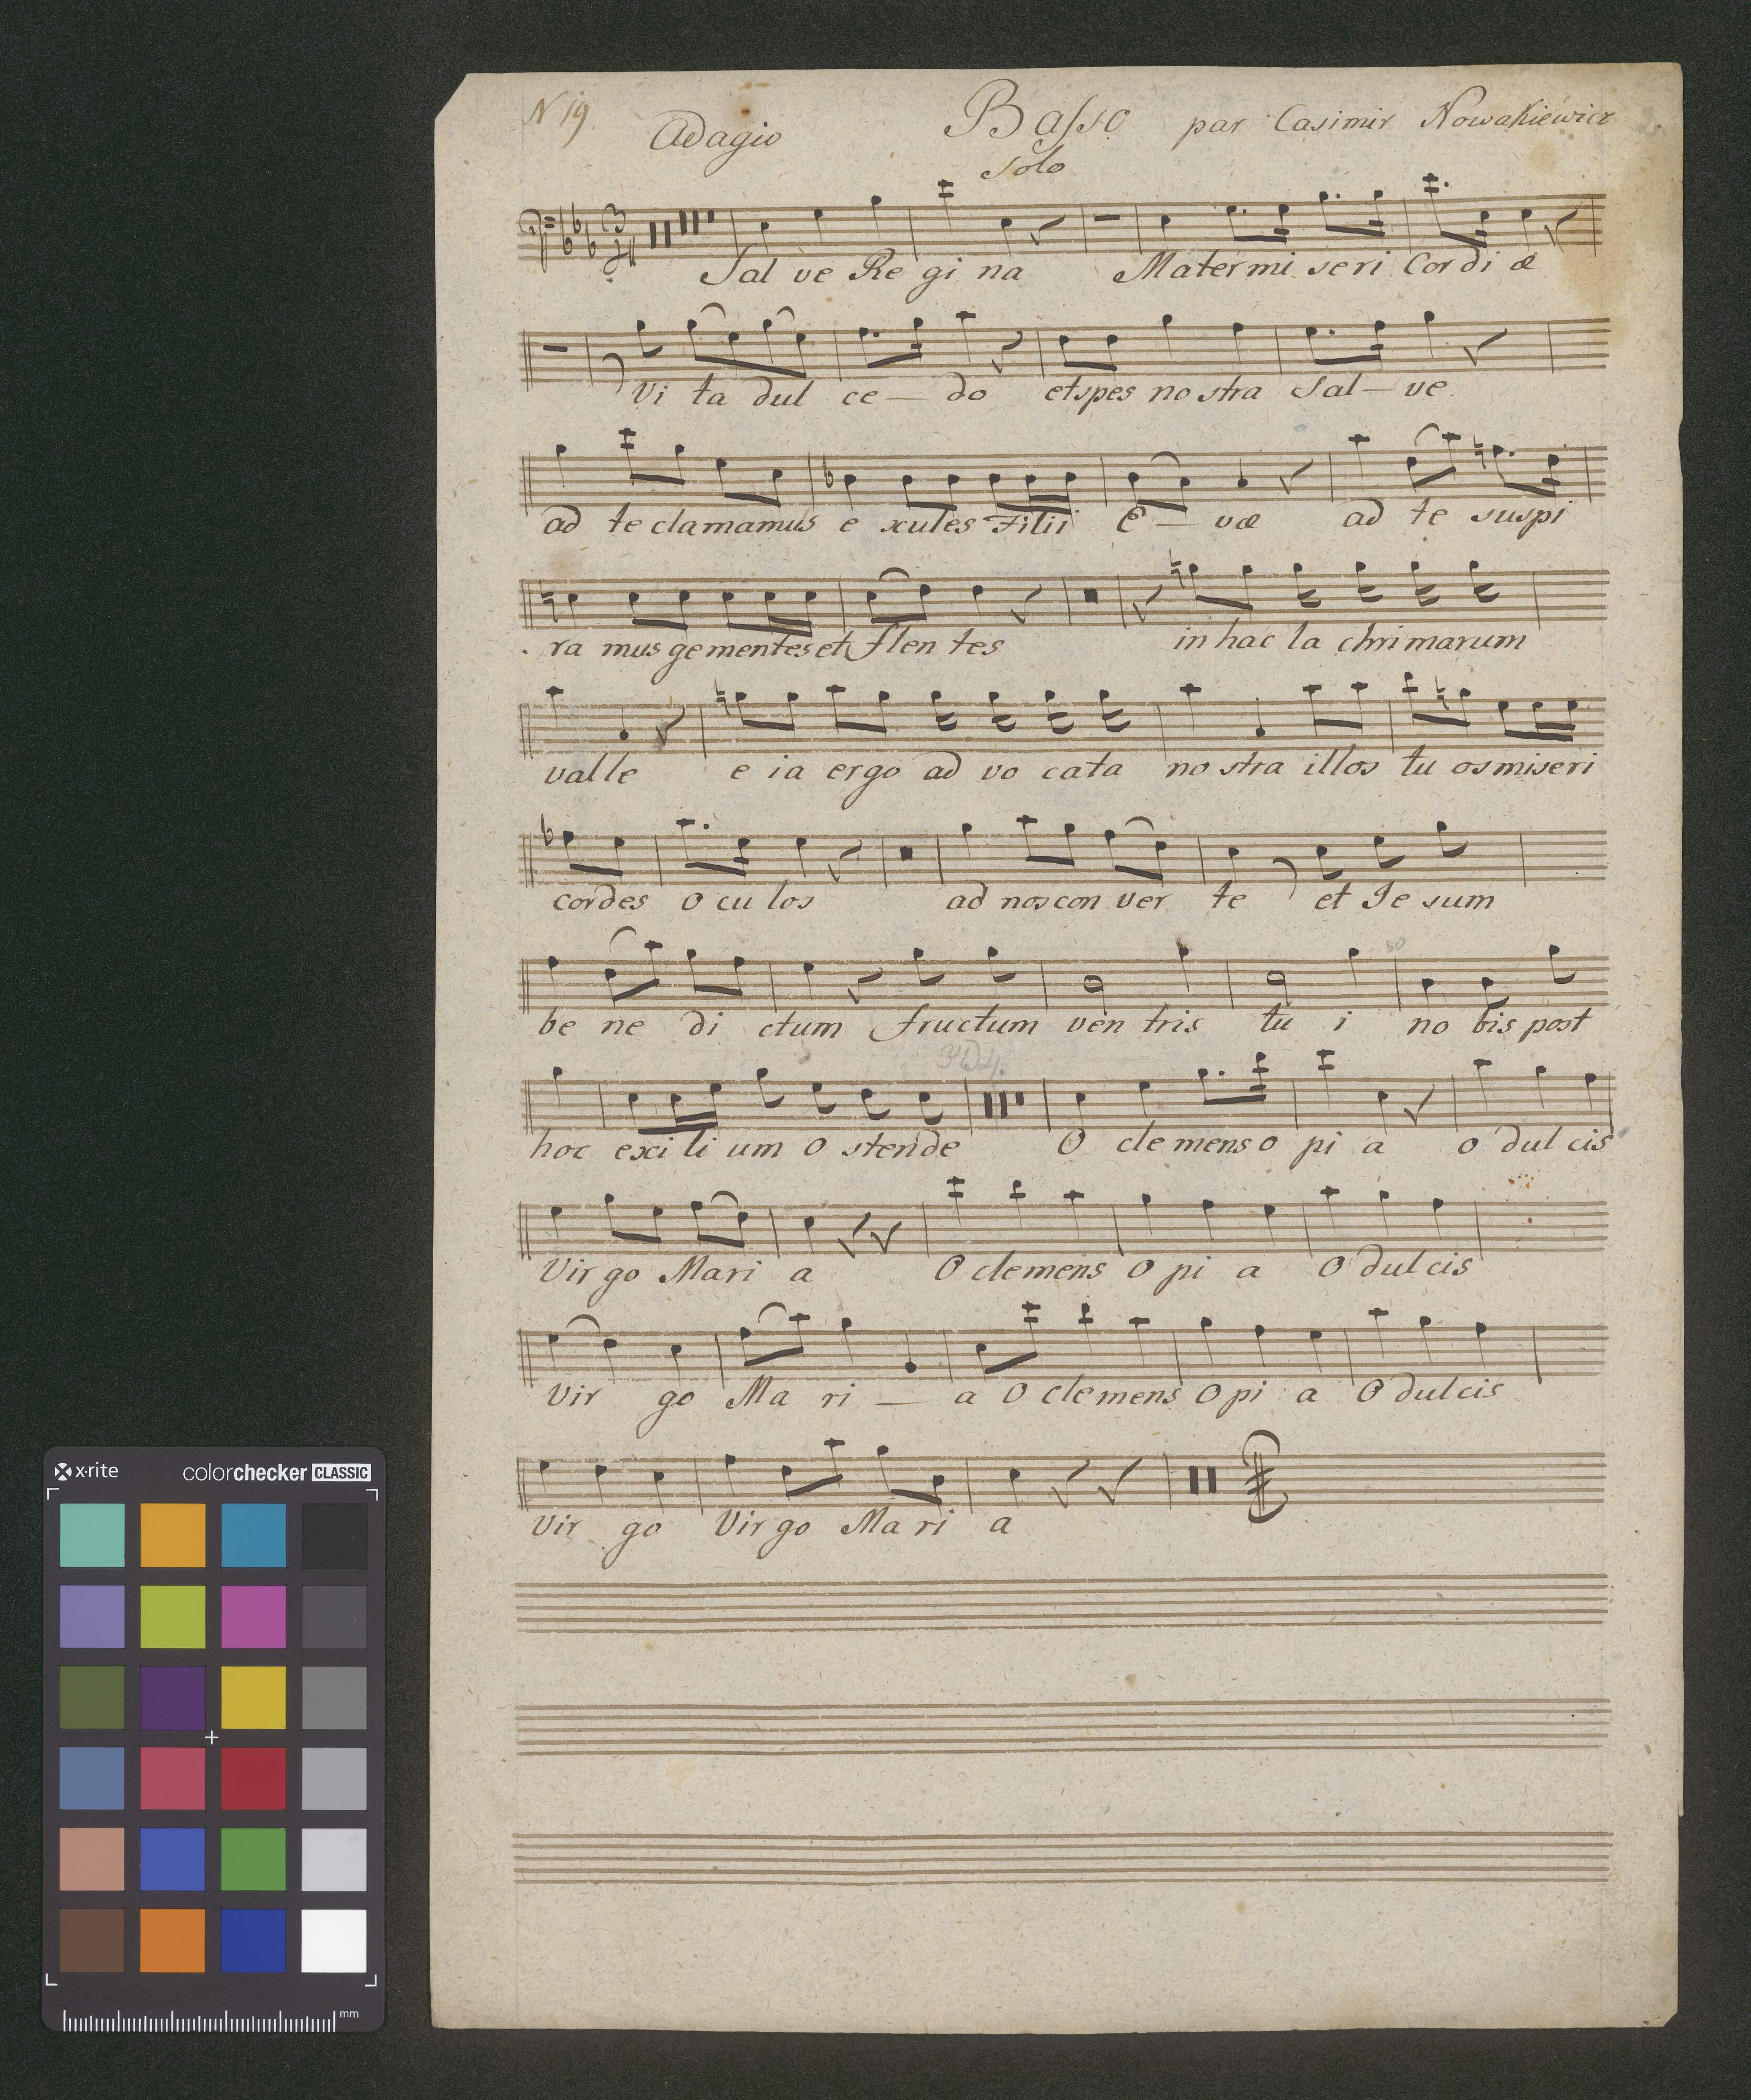 N 19
Adagio
Basso
par Casimir Nowakiewicz
Solo
Sal ve Re gi na Mater mi seri Cor di æ
Vi ta dul ce — do et spes no stra Sal — ve.
ad te clamamus e xules Filii E — væ ad te suspi
ra mus gementes et flen tes in hac la chri marum
valle e ia ergo ad vo cata no stra illos tu os miseri
cordes o cu los ad nos con ver te et Je sum
be ne di ctum fructum ven tris tu i no bis post
hoc exi li um O stende O cle mens o pi a o dul cis
Vir go Mari a O clemens O pi a O dul cis
vir go Ma ri — a O clemens O pi a O dul cis
vir go Vir go Ma ri a
x-rite
colorchecker CLASSIC
mm